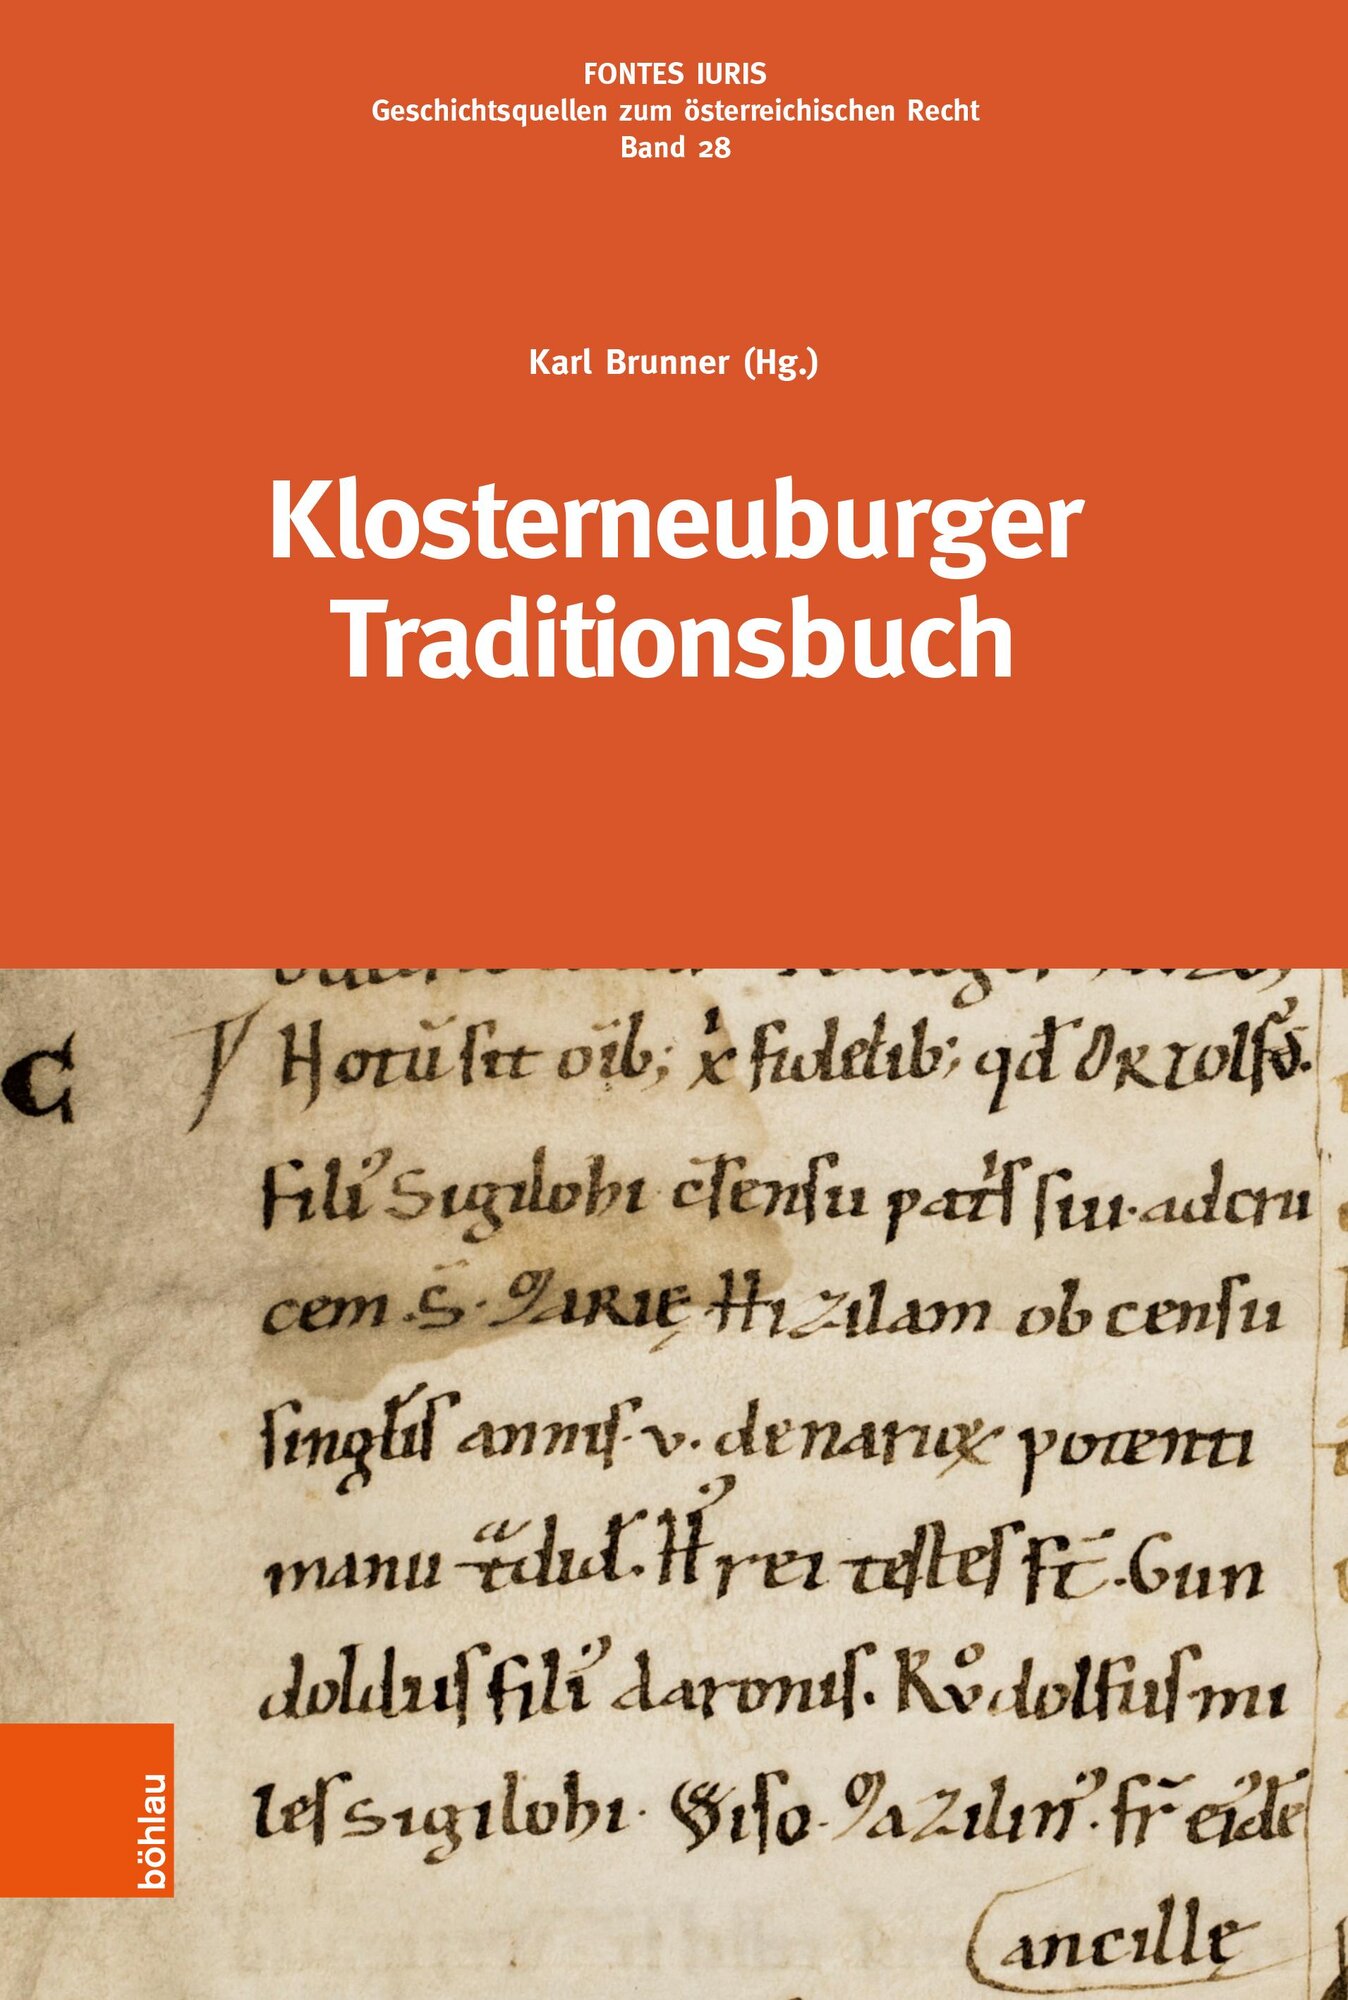 FONTES IURIS
Geschichtsquellen zum österreichischen Recht
Band 28
Karl Brunner (Hg.)
Klosterneuburger
Traditionsbuch
C
Notū sit oīb; x fidelib; qđ Ortolf᾽.
fili᾽ Sigilohi c̄sensu patͥs sui. ad cru
cem .S. Marię Hizilam ob censu
singlis annis .v. denarioꝝ potenti
manu tͣdid. H᾽ rei testes st̄. Gun
doldus fili᾽ daronis. Růdolfus mi
les Sigilohi. Wiso. Mazilin᾽. fr̄ ei᾽dē
ancillę
böhlau